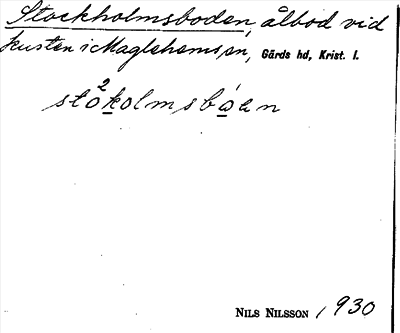 Stockholmsboden, ålbod vid
kusten i Maglehems sn, Gärds hd, Krist. l.
stå²kolmsbóen
NILS NILSSON 1930